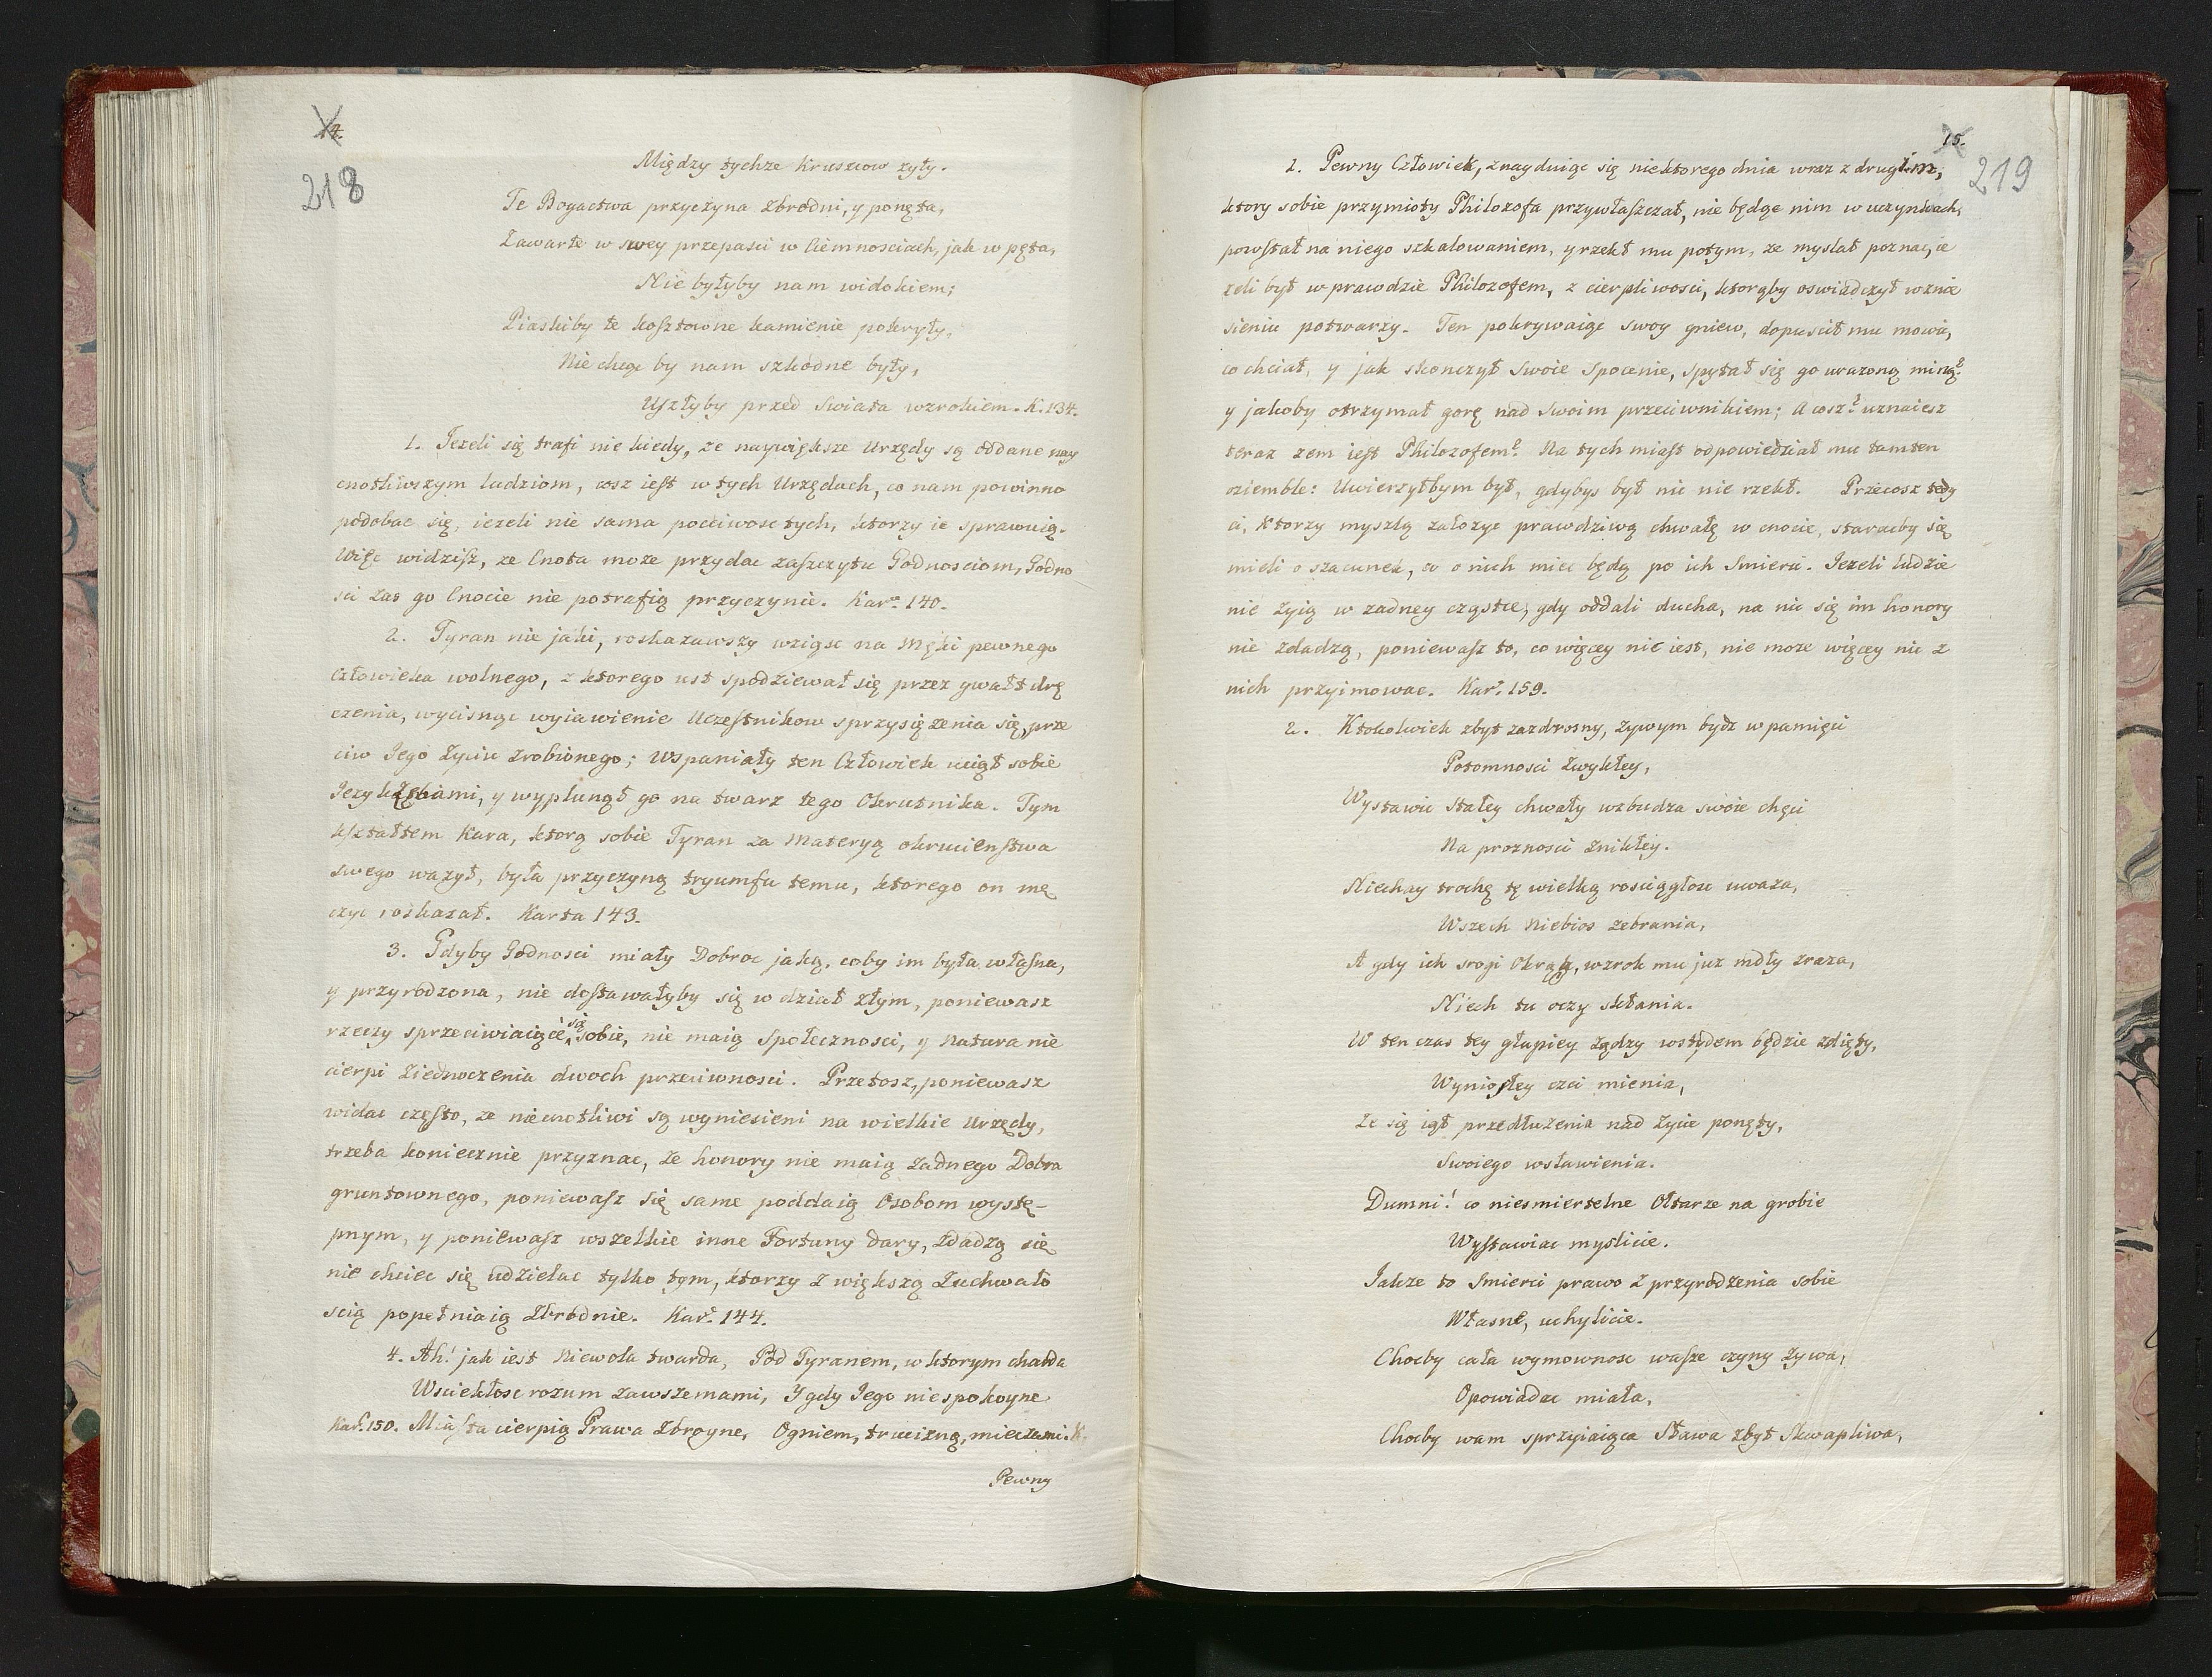 14.
218
Między tychze Kruszcow zyły.
Te Bogactwa przyczyna Zbrodni, y ponęta,
Zawarte w swey przepasci w Ciemnosciach, jak w pęta,
Nie byłyby nam widokiem;
Piaskiby te kosztowne kamienie pokryły,
Nie chcąc by nam szkodne były,
Uszłyby przed Swiata wzrokiem. K. 134.
1. Jezeli się trafi nie kiedy, ze naywiększe Urzędy są oddane nay
cnotliwszym ludziom, cosz iest w tych Urzędach, co nam powinno
podobac się, iezeli nie sama poczciwosc tych, ktorzy ie sprawuią.
Więc widzisz, ze Cnota moze przydac zaszczytu Godnosciom, Godno
sci zas go Cnocie nie potrafią przyczynic. Kar. 140.
2. Tyran nie jaki, roskazawszy wziąsc na Męki pewnego
Człowieka wolnego, z ktorego ust spodziewał się przez gwałt drę
czenia, wycisnąc wyiawienie Uczestnikow sprzysięzenia się, prze
ciw Jego Zyciu zrobionego; Wspaniały ten Człowiek uciął sobie
Jezyk Zębami, y wyplunął go na twarz tego Okrutnika. Tym
kształtem Kara, ktorą sobie Tyran za Materyą okrucienstwa
swego wazył, była przyczyną tryumfu temu, ktorego on mę
czyc roskazał. Karta 143.
3. Gdyby Godnosci miały Dobroc jaką, coby im była własna,
y przyrodzona, nie dostawałyby się w dział złym, poniewasz
rzeczy sprzeciwiaiące się sobie, nie maią Społecznosci, y Natura nie
cierpi Ziednoczenia dwoch przeciwnosci. Przetosz, poniewasz
widac często, ze niecnotliwi są wyniesieni na wielkie Urzędy,
trzeba koniecznie przyznac, ze honory nie maią zadnego Dobra
gruntownego, poniewasz się same poddaią Osobom wystę-
pnym, y poniewasz wszelkie inne Fortuny dary, zdadzą się
nie chciec się udzielac tylko tym, ktorzy z większą Zuchwało
scią popełniaią Zbrodnie. Kar. 144.
4. Ah! jak iest Niewola twarda, Pod Tyranem, w ktorym charda
Wsciekłosc rozum zawsze mami, Y gdy Jego niespokoyne
Kar. 150. Miasta cierpią Prawa Zbroyne, Ogniem, trucizną, mieczami. K.
Pewny
15.
219
1. Pewny Człowiek, znayduiąc się niektorego dnia wraz z drugim,
ktory sobie przymioty Philozofa przywłaszczał, nie będąc nim w uczynkach,
powstał na niego szkalowaniem, y rzekł mu potym, ze myslał poznac, ie
zeli był w prawdzie Philozofem, z cierpliwosci, ktorąby oswiadczył w znie
sieniu potwarzy. Ten pokrywaiąc swoy gniew, dopuscił mu mowic,
co chciał, y jak skonczył swoie Spocenie, spytał się go urazoną miną
y jakoby otrzymał gorę nad swoim przeciwnikiem; A cosz? uznaiesz
teraz zem iest Philozofem? Na tych miast odpowiedział mu tamten
oziemble: Uwierzyłbym był, gdybys był nic nie rzekł. Przecosz tedy
ci, Ktorzy myszlą załozyc prawdziwą chwałę w cnocie, staracby się
mieli o szacunek, co o nich miec będą po ich Smierci. Jezeli ludzie
nie zyią w zadney cząstce, gdy oddali ducha, na nic się im honory
nie zdadzą, poniewasz to, co więcey nie iest, nie moze więcey nic z
nich przyimowac. Kar. 159.
2. Ktokolwiek zbyt zazdrosny, zywym bydz w pamięci
Potomnosci Zwykłey,
Wystawic Stałey chwały wzbudza swoie chęci
Na proznosci Znikłey.
Niechay trochę tę wielką rosciągłosc uwaza,
Wszech Niebios zebrania,
A gdy ich srogi Okrąg, wzrok mu juz mdły zraza,
Niech tu oczy skłania.
W ten czas tey głupiey Ządzy wstydem będzie zdięty,
Wyniosłey czci mienia,
Ze się iął przedłuzenia nad Zycie ponęty,
Swoiego wsławienia.
Dumni! co niesmiertelne Ołtarze na grobie
Wystawiac myslicie.
Jakze to Smierci prawo z przyrodzenia sobie
Własne, uchylicie.
Chocby cała wymownosc wasze czyny zywa,
Opowiadac miała,
Chocby wam sprzyiaiąca Sława zbyt Skwapliwa,